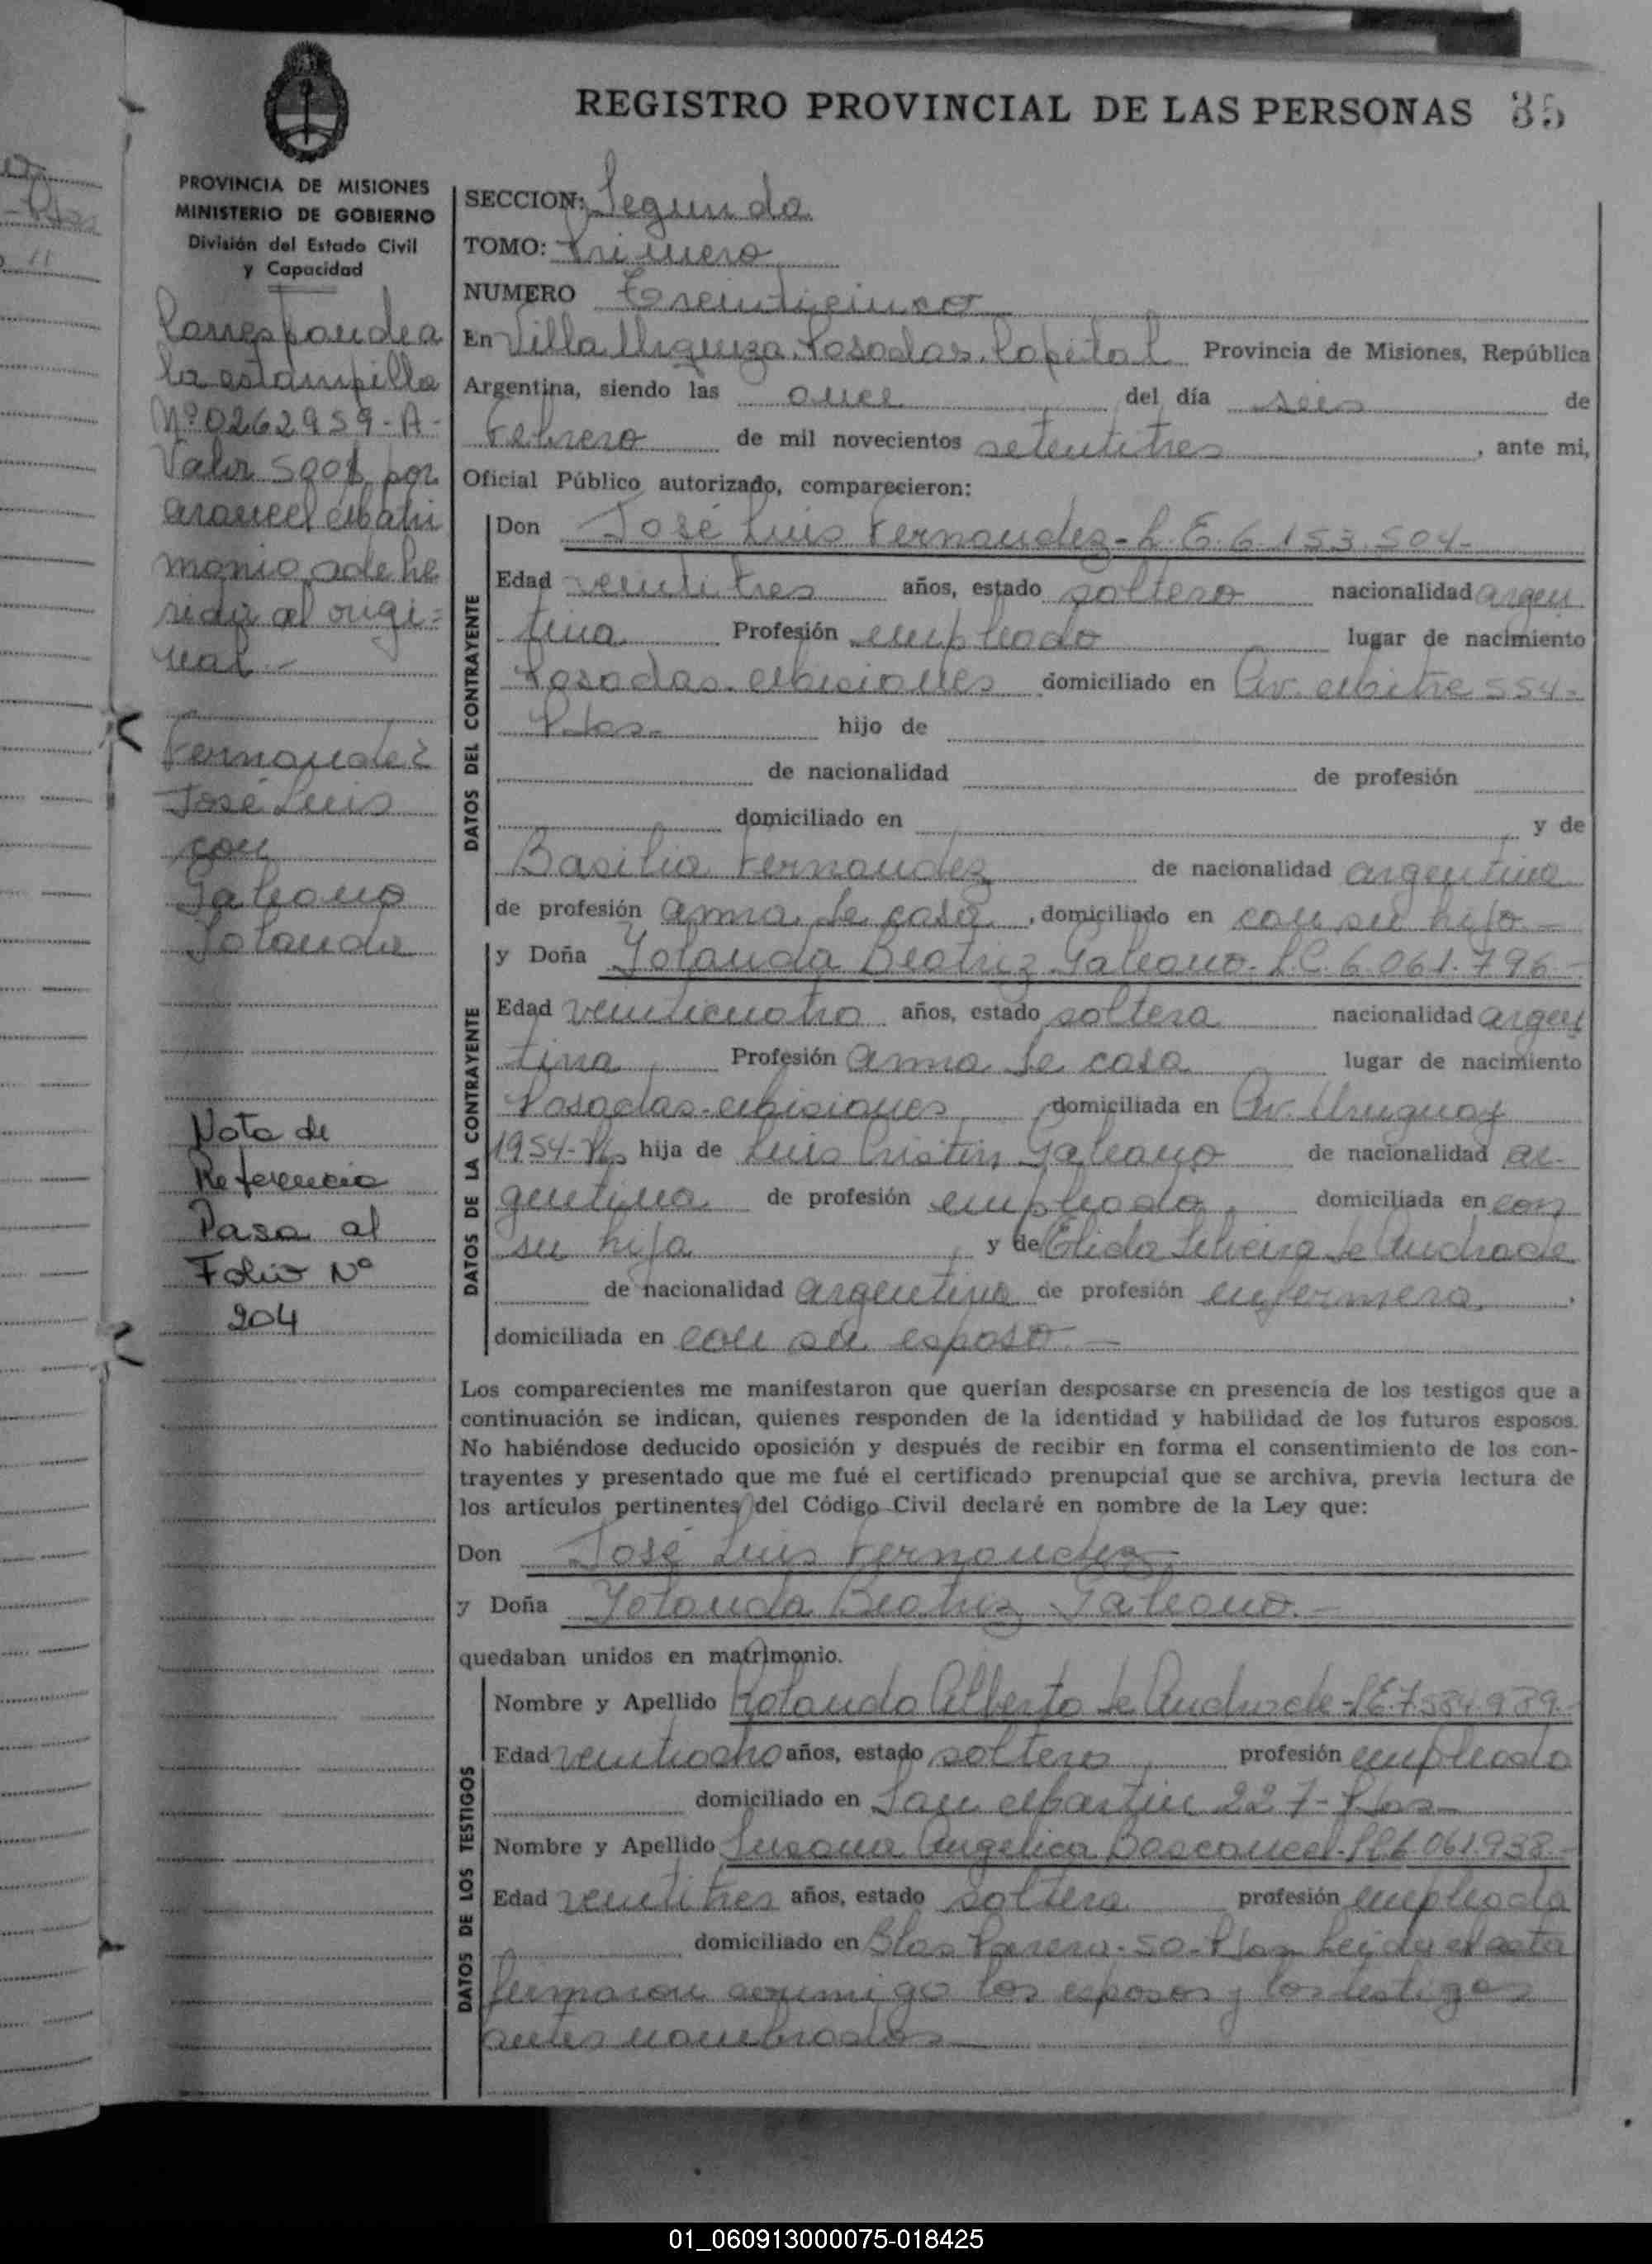 REGISTRO PROVINCIAL DE LAS PERSONAS 35
PROVINCIA DE MISIONES
MINISTERIO DE GOBIERNO
División del Estado Civil
y Capacidad
Corresponde a
la estampilla
Nº 0262959-A-
Valor 500$ por
arancel matri
monio, adhe
rida al origi=
nal.-
Fernandez
José Luis
con
Galeano
Yolanda
Nota de
Referencia
Pasa al
Folio Nº
204
SECCION: Segunda
TOMO: Primero
NUMERO Treinticinco
En Villa Urquiza, Posadas, Capital Provincia de Misiones, República
Argentina, siendo las once del día seis de
Febrero de mil novecientos setentitres, ante mi,
Oficial Público autorizado, comparecieron:
DATOS DEL CONTRAYENTE
Don José Luis Fernandez - L.E. 6.153.504-
Edad veintitres años, estado soltero nacionalidad argen
tina Profesión empleado lugar de nacimiento
Posadas-Misiones domiciliado en Av. Mitre 554-
Pdas- hijo de
de nacionalidad de profesión
domiciliado en y de
Basilia Fernandez de nacionalidad argentina
de profesión ama de casa, domiciliado en con su hijo.-
DATOS DE LA CONTRAYENTE
y Doña Yolanda Beatriz Galeano. L.C. 6.061.796-
Edad veinticuatro años, estado soltera nacionalidad argen
tina Profesión ama de casa lugar de nacimiento
Posadas-Misiones domiciliada en Av. Uruguay
1954-Pds hija de Luis Galeano de nacionalidad ar-
gentina de profesión empleado, domiciliada en con
su hija y de Elida Silveira de Andrade
de nacionalidad argentina de profesión enfermera,
domiciliada en con su esposo.-
Los comparecientes me manifestaron que querían desposarse en presencia de los testigos que a
continuación se indican, quienes responden de la identidad y habilidad de los futuros esposos.
No habiéndose deducido oposición y después de recibir en forma el consentimiento de los con-
trayentes y presentado que me fué el certificado prenupcial que se archiva, previa lectura de
los artículos pertinentes del Código Civil declaré en nombre de la Ley que:
Don José Luis Fernandez
y Doña Yolanda Beatriz Galeano.-
quedaban unidos en matrimonio.
DATOS DE LOS TESTIGOS
Nombre y Apellido Rolando Alberto de Andrade - LE. 7.584.989.-
Edad veintiocho años, estado soltero, profesión empleado
domiciliado en San Martin 227- Pdas-
Nombre y Apellido Susana Angelica LC 6.061.938-
Edad veintitres años, estado soltera profesión empleada
domiciliado en Blas Parera-50-Pdas Leida el acta
firmaron conmigo los esposos y los testigos
antes nombrados
01_060913000075-018425